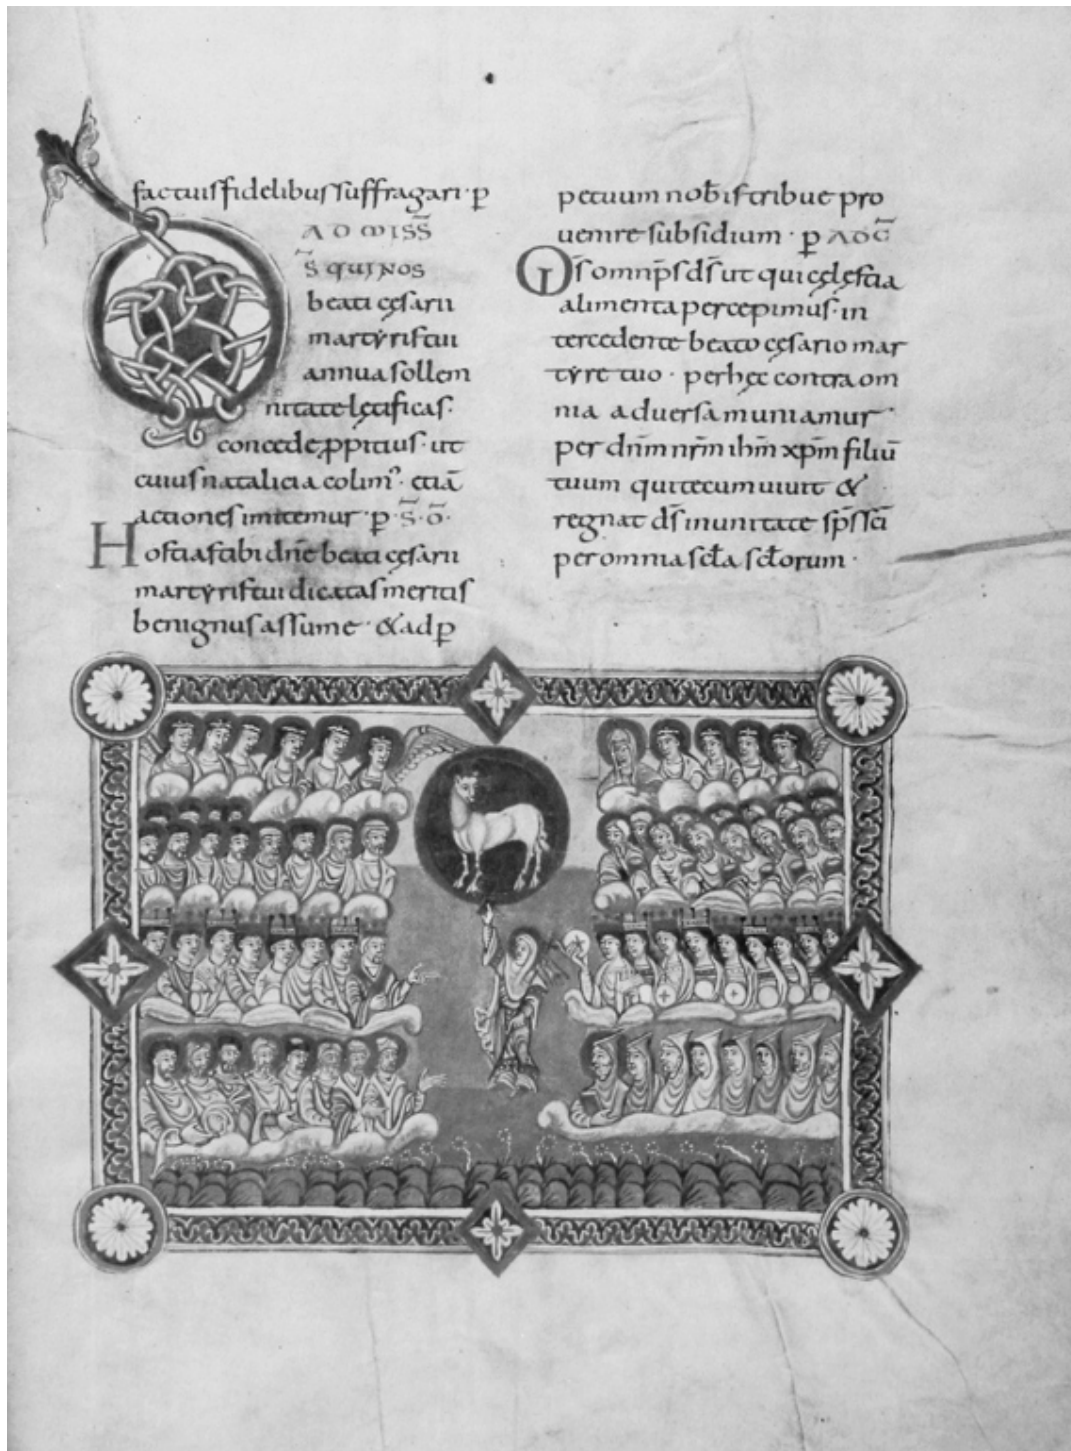 factuisfidelibus suffragari · p̱
AD MISS̄
D̄S̄ QUI NOS
beati cęsarii
martyris tui
annua sollem
nitate lętificas ·
concede p̱pitius · ut
cuius natalicia colim᾽ · etiā
actiones imitemur · p̱ · S̄ · Ō ·
Hostias tibi dn̄e beati cęsarii
martyris tui dicatas meritis
benignus assume · & ad p̱
petuum nob̄is tribue pro
uenire subsidium · p̱ AD C̄
Qs̄ omnip̄s ds̄ ut qui cęlestia
alimenta percepimus · in
tercedente beato cęsario mar
tyre tuo · per hęc contra om
nia aduersa muniamur ·
per dn̄m nr̄m ihm̄ xp̄m filiū
tuum qui tecum uiuit &
regnat ds̄ in unitate sp̄s sc̄i
per omnia sc̄la sc̄lorum ·